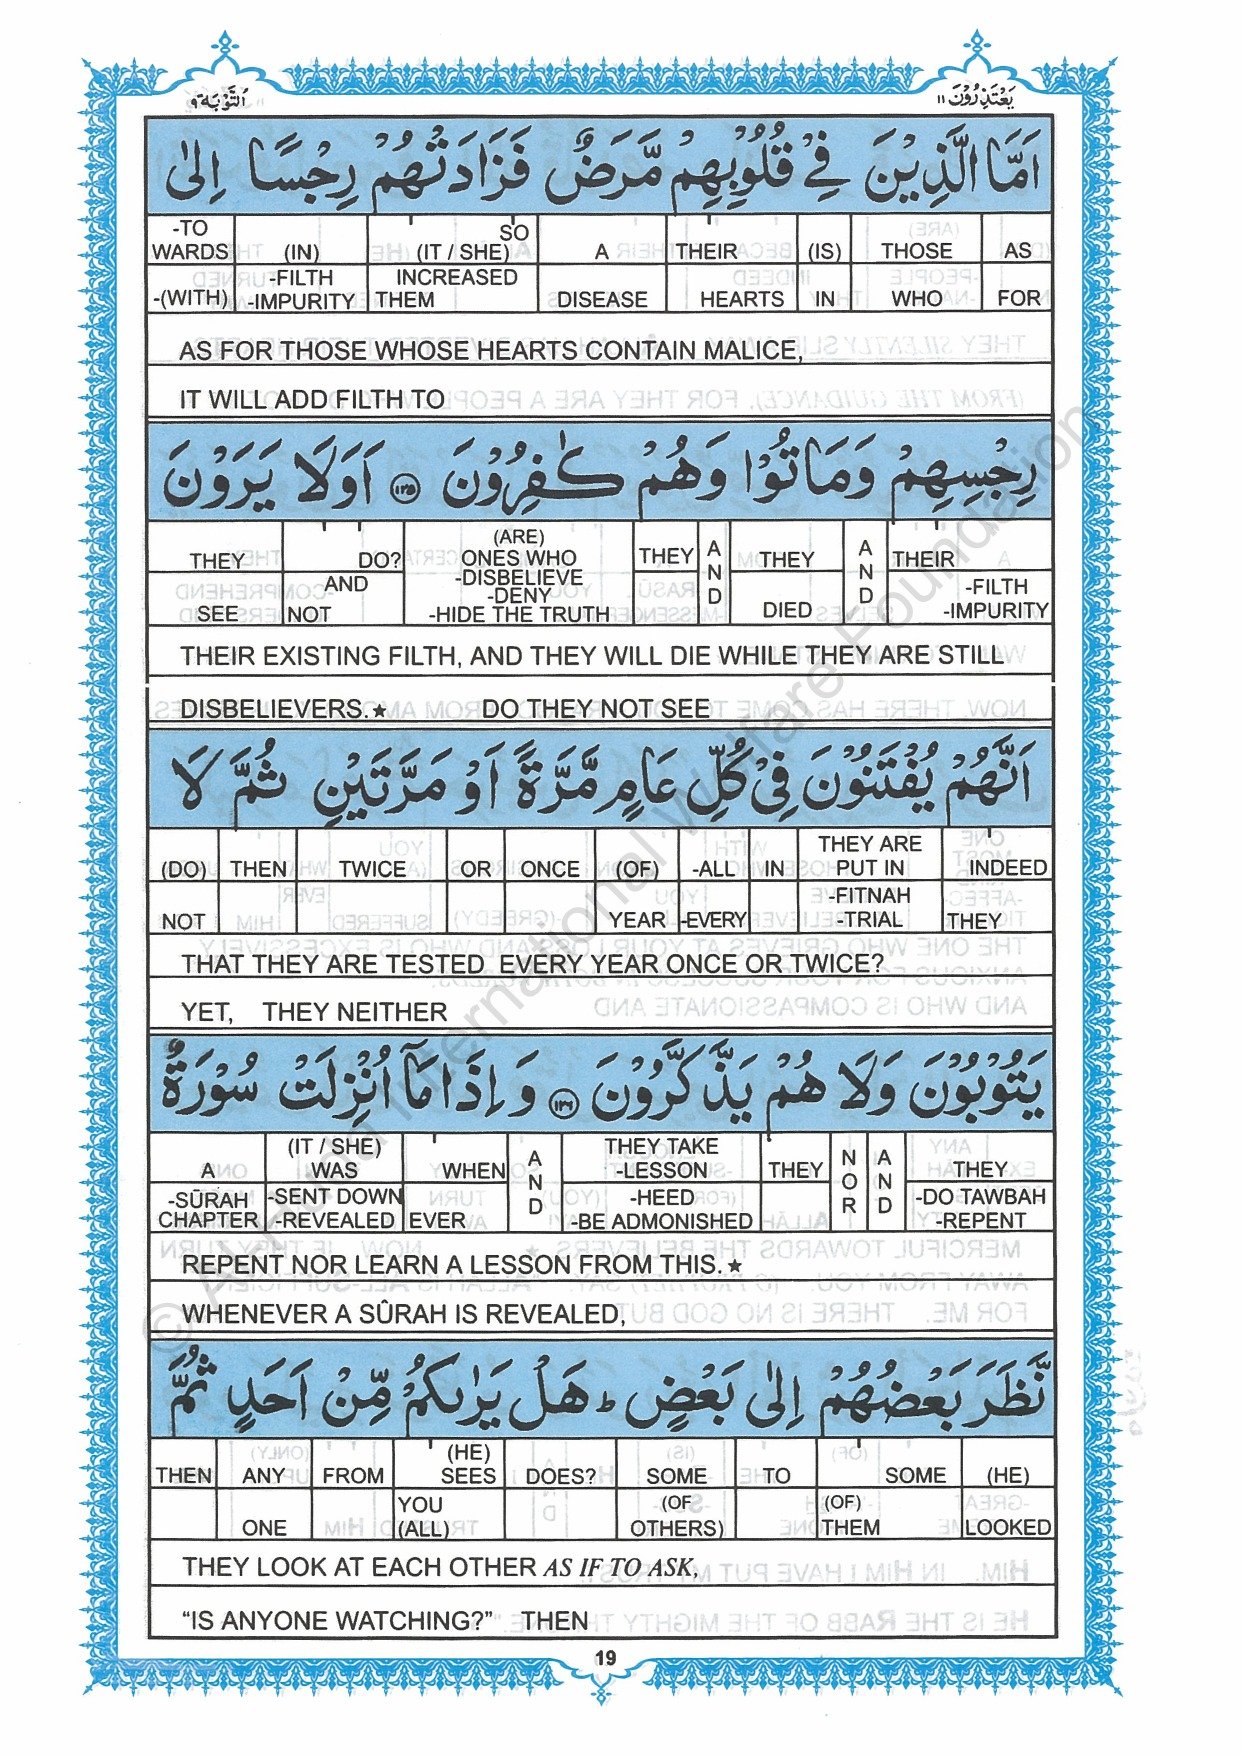 التَّوْبَة ٩
يَعْتَذِرُوْنَ ١١
اَمَّا الَّذِيْنَ فِيْ قُلُوْبِهِمْ مَّرَضٌ فَزَادَتْهُمْ رِجْسًا اِلٰى
-TO WARDS (IN) SO (IT / SHE) A THEIR (IS) THOSE AS
-(WITH) -FILTH -IMPURITY INCREASED THEM DISEASE HEARTS IN WHO FOR
AS FOR THOSE WHOSE HEARTS CONTAIN MALICE,
IT WILL ADD FILTH TO
رِجْسِهِمْ وَمَاتُوْا وَهُمْ كٰفِرُوْنَ ١٢٥ اَوَلَا يَرَوْنَ
THEY DO? (ARE) ONES WHO THEY AND THEY AND THEIR
SEE AND NOT -DISBELIEVE -DENY -HIDE THE TRUTH DIED -FILTH -IMPURITY
THEIR EXISTING FILTH, AND THEY WILL DIE WHILE THEY ARE STILL
DISBELIEVERS.★ DO THEY NOT SEE
اَنَّهُمْ يُفْتَنُوْنَ فِيْ كُلِّ عَامٍ مَّرَّةً اَوْ مَرَّتَيْنِ ثُمَّ لَا
(DO) THEN TWICE OR ONCE (OF) -ALL IN THEY ARE PUT IN INDEED
NOT YEAR -EVERY -FITNAH -TRIAL THEY
THAT THEY ARE TESTED EVERY YEAR ONCE OR TWICE?
YET, THEY NEITHER
يَتُوْبُوْنَ وَلَا هُمْ يَذَّكَّرُوْنَ ١٢٦ وَاِذَا مَآ اُنْزِلَتْ سُوْرَةٌ
A (IT / SHE) WAS WHEN AND THEY TAKE -LESSON THEY NOR AND THEY
-SÛRAH CHAPTER -SENT DOWN -REVEALED EVER -HEED -BE ADMONISHED -DO TAWBAH -REPENT
REPENT NOR LEARN A LESSON FROM THIS.★
WHENEVER A SÛRAH IS REVEALED,
نَّظَرَ بَعْضُهُمْ اِلٰى بَعْضٍ ؕ هَلْ يَرٰىكُمْ مِّنْ اَحَدٍ ثُمَّ
THEN ANY FROM (HE) SEES DOES? SOME TO SOME (HE)
ONE YOU (ALL) (OF OTHERS) (OF) THEM LOOKED
THEY LOOK AT EACH OTHER AS IF TO ASK,
“IS ANYONE WATCHING?” THEN
19